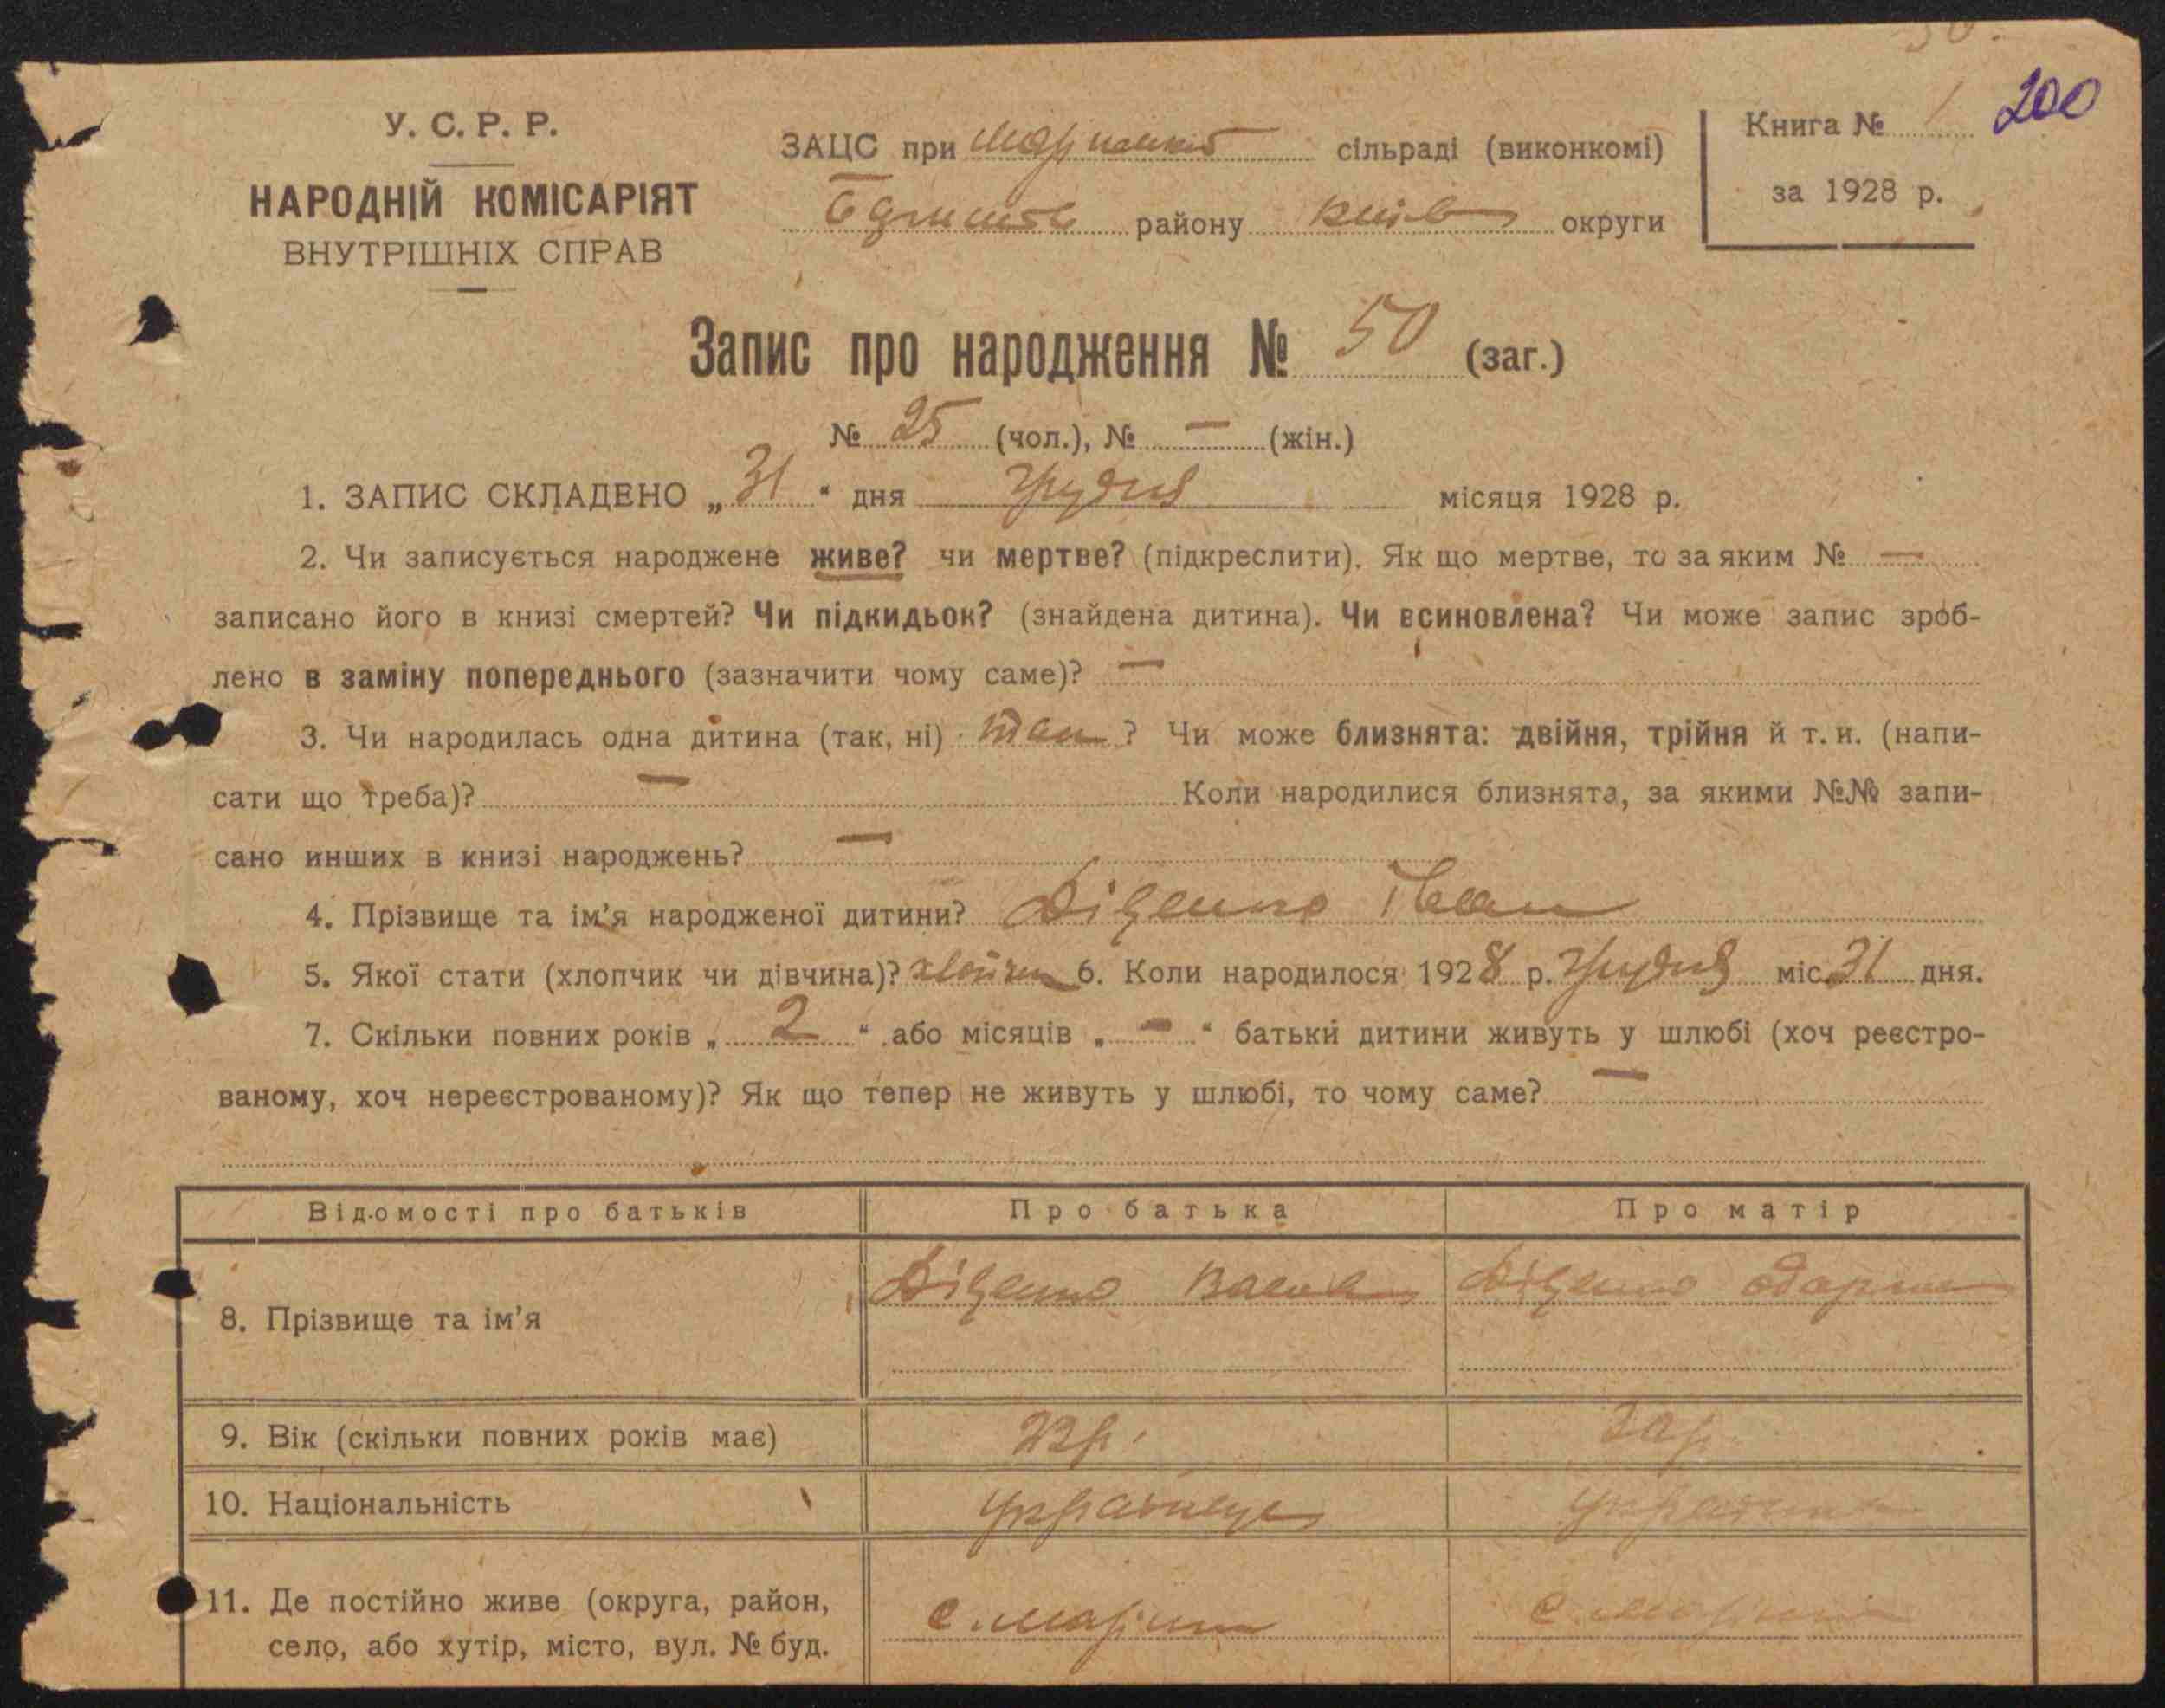 200
У. С. Р. Р.
НАРОДНІЙ КОМІСАРІЯТ
ВНУТРІШНІХ СПРАВ
ЗАЦС при сільраді (виконкомі)
району Київ округи
Книга № 1
за 1928 р.
Запис про народження № 50 (заг.)
№ 25 (чол.), № — (жін.)
1. ЗАПИС СКЛАДЕНО „ 31 “ дня Грудня місяця 1928 р.
2. Чи записується народжене живе? чи мертве? (підкреслити). Як що мертве, то за яким № —
записано його в книзі смертей? Чи підкидьок? (знайдена дитина). Чи всиновлена? Чи може запис зроб-
лено в заміну попереднього (зазначити чому саме)? —
3. Чи народилась одна дитина (так, ні) так ? Чи може близнята: двійня, трійня й т. и. (напи-
сати що треба)? — Коли народилися близнята, за якими №№ запи-
сано инших в книзі народжень? —
4. Прізвище та ім’я народженої дитини? Діденко Іван
5. Якої стати (хлопчик чи дівчина)? 6. Коли народилося 1928 р. Грудня міс. 31 дня.
7. Скільки повних років „ 2 “ або місяців „ — “ батьки дитини живуть у шлюбі (хоч реєстро-
ваному, хоч нереєстрованому)? Як що тепер не живуть у шлюбі, то чому саме? —
Відомості про батьків Про батька Про матір
8. Прізвище та ім’я Діденко Діденко
9. Вік (скільки повних років має)
10. Національність Українец Українка
11. Де постійно живе (округа, район,
село, або хутір, місто, вул. № буд.